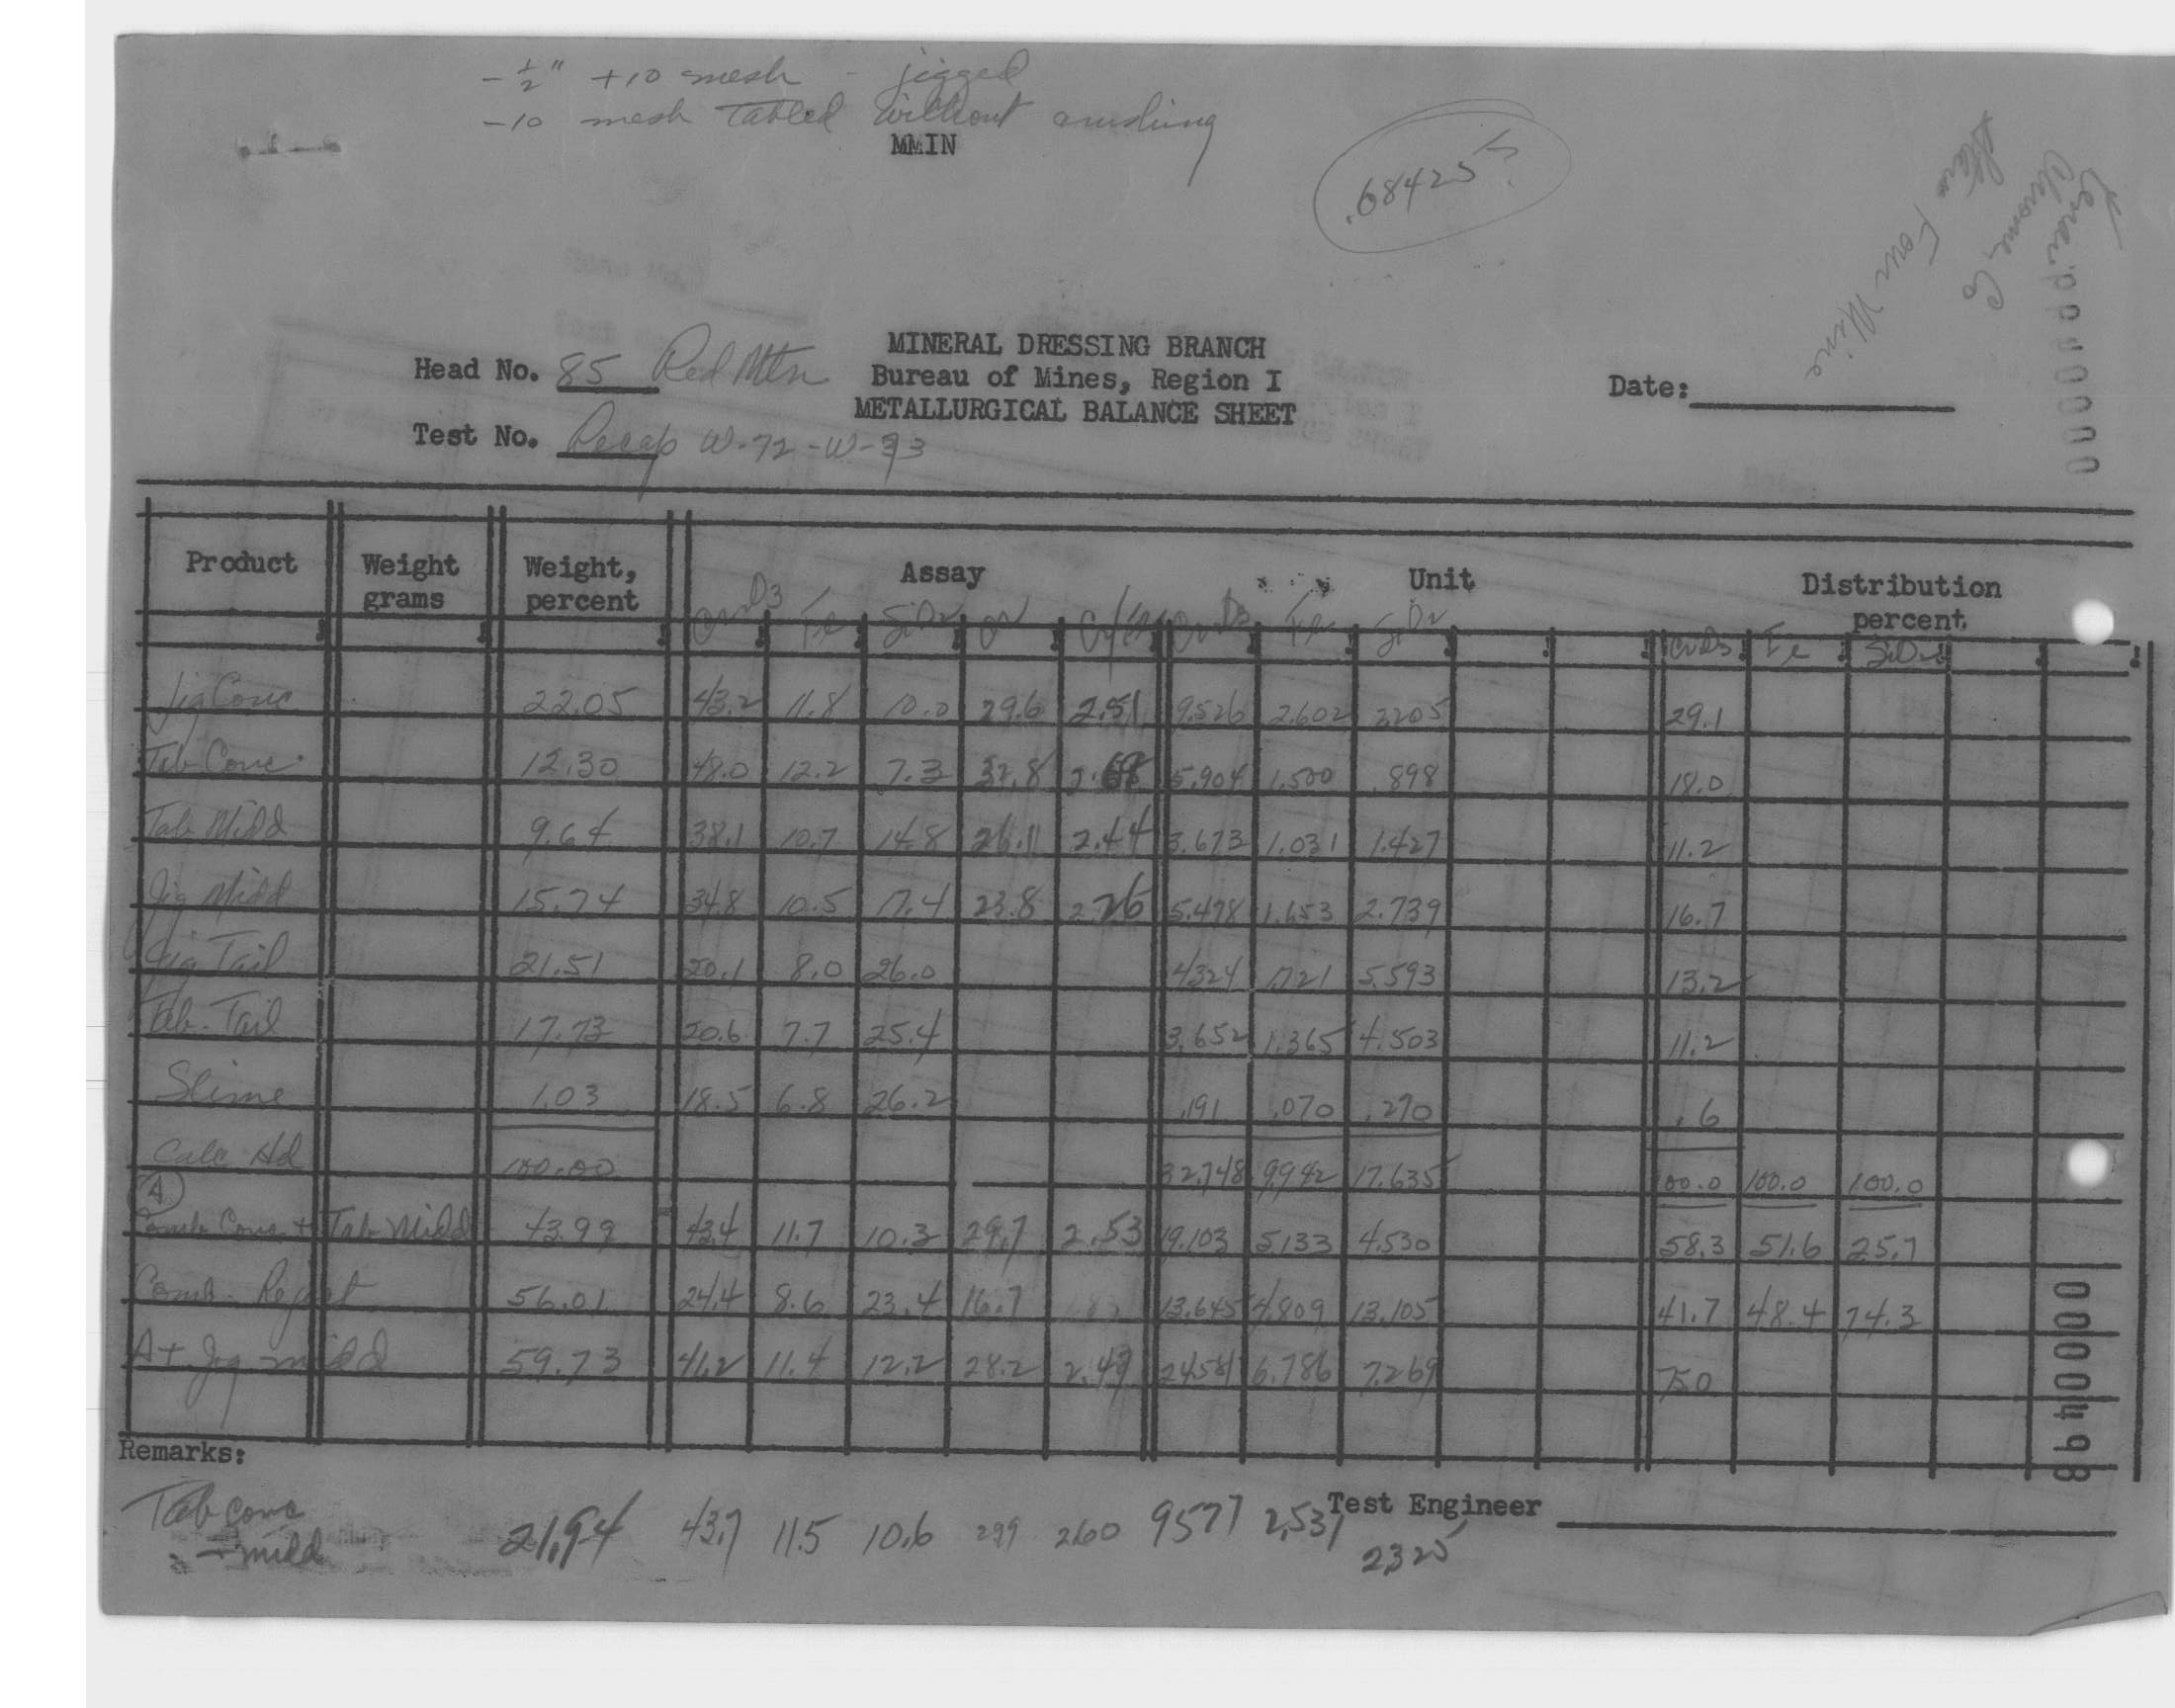 - 1/2" +10 mesh - jigged
-10 mesh tabled without crushing
MMIN
.68425
Kenai
Chrome Co
Star Four Mine
MINERAL DRESSING BRANCH
Head No. 85 Red Mtn Bureau of Mines, Region I Date:
METALLURGICAL BALANCE SHEET
Test No. Recap W-72-W-93
Product Weight grams Weight, percent Assay Unit Distribution percent
Cr2O3 Fe SiO2 Cr Cr/Fe Cr2O3 Fe SiO2 Cr2O3 Fe SiO2
Jig Conc 22.05 43.2 11.8 10.0 29.6 2.51 9.526 2.602 2.205 29.1
Tab Conc 12.30 48.0 12.2 7.3 32.8 2.68 5.904 1.500 .898 18.0
Tab Midd 9.64 38.1 10.7 14.8 26.1 2.44 3.673 1.031 1.427 11.2
Jig Midd 15.74 34.8 10.5 17.4 23.8 2.26 5.478 1.653 2.739 16.7
Jig Tail 21.51 20.1 8.0 26.0 4.324 1.721 5.593 13.2
Tab. Tail 17.73 20.6 7.7 25.4 3.652 1.365 4.503 11.2
Slime 1.03 18.5 6.8 26.2 .191 .070 .270 .6
Calc Hd 100.00 32.748 9.942 17.635 100.0 100.0 100.0
A
Comb Conc + Tab Midd 43.99 43.4 11.7 10.3 29.7 2.53 19.103 5.133 4.530 58.3 51.6 25.7
Comb. Reject 56.01 24.4 8.6 23.4 16.7 13.645 4.809 13.105 41.7 48.4 74.3
A + Jig midd 59.73 41.2 11.4 12.2 28.2 2.47 24.581 6.786 7.269 75.0
0000498
Remarks:
Test Engineer
Tab conc + midd 21.94 43.7 11.5 10.6 299 260 9577 2,531 2325